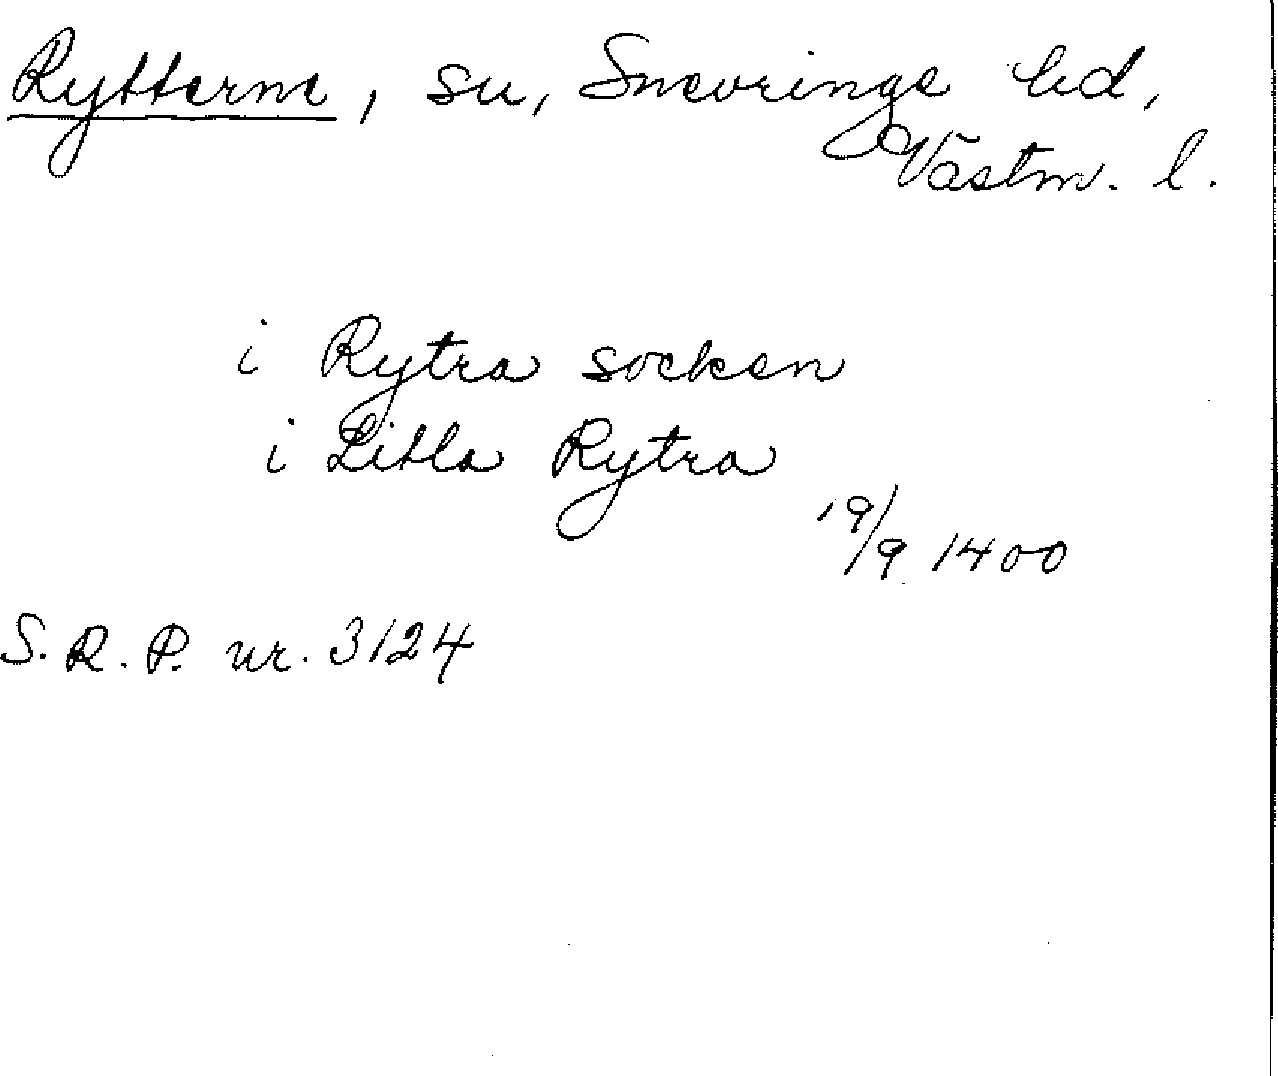 Rytterne, sn, Snevringe hd,
Västm. l.
i Rytra socken
i Litla Rytra
19/9 1400
S. R. P. nr. 3124